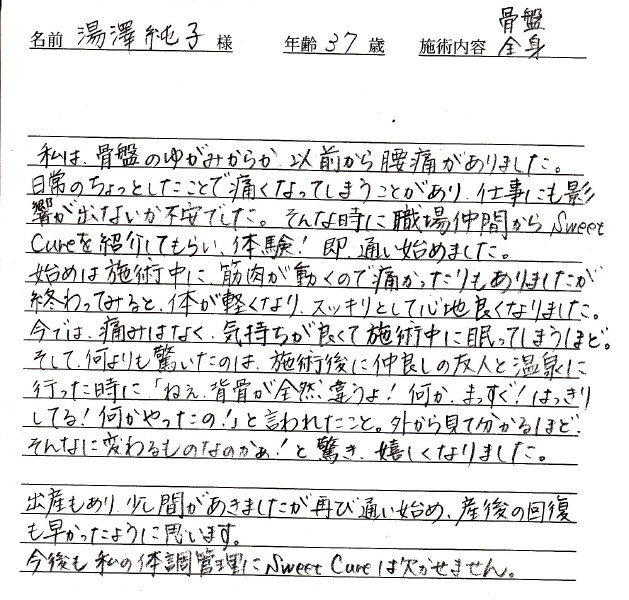 名前 湯澤純子 様 年齢 37 歳 施術内容 骨盤 全身
私は、骨盤のゆがみからか、以前から腰痛がありました。
日常のちょっとしたことで痛くなってしまうことがあり、仕事にも影
響が出ないか不安でした。そんな時に職場仲間からSweet
Cureを紹介してもらい、体験！即、通い始めました。
始めは施術中に、筋肉が動くので痛かったりもありましたが
終わってみると、体が軽くなり、スッキリとして心地良くなりました。
今では、痛みはなく、気持ちが良くて施術中に眠ってしまうほど。
そして、何よりも驚いたのは、施術後に仲良しの友人と温泉に
行った時に「ねぇ、背骨が全然違うよ！何か、まっすぐ！はっきり
してる！何かやったの！」と言われたこと。外から見て分かるほど、
そんなに変わるものなのかぁ！と驚き、嬉しくなりました。
出産もあり、少し間があきましたが再び通い始め、産後の回復
も早かったように思います。
今後も私の体調管理にSweet Cureは欠かせません。